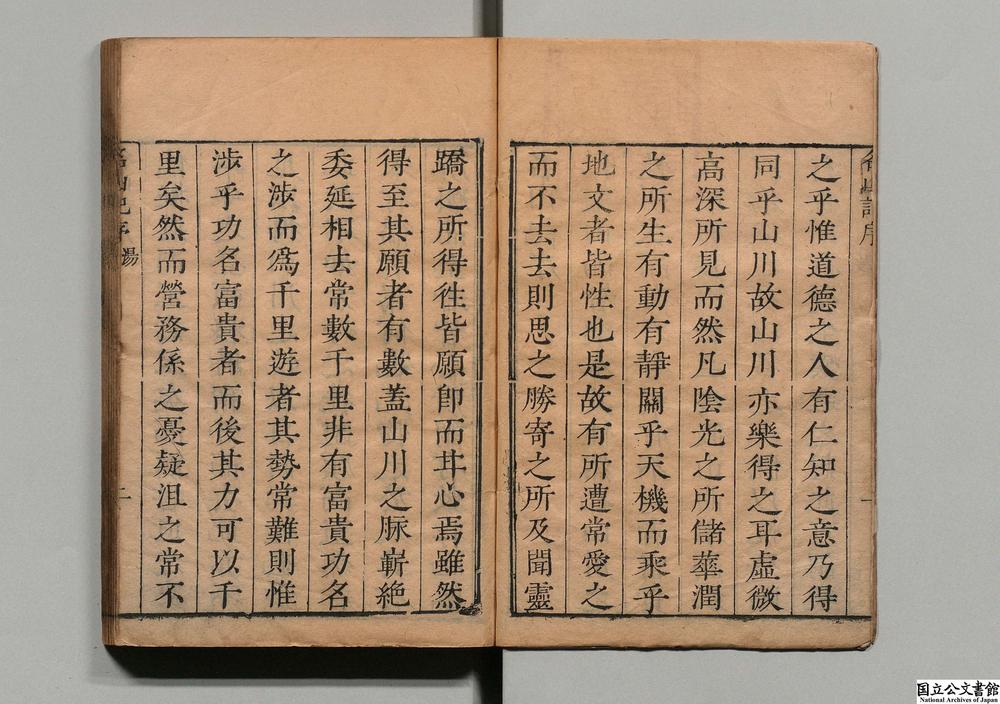 之乎惟道德之人有仁知之意乃得
同乎山川故山川亦樂得之耳虛微
高深所見而然凡陰光之所儲華潤
之所生有動有靜關乎天機而乘乎
地文者皆性也是故有所遭常愛之
而不去去則思之勝寄之所及聞靈
蹻之所得徃皆願卽而甘心焉雖然
得至其願者有數蓋山川之脉嶄絶
委延相去常數千里非有富貴功名
之涉而爲千里遊者其勢常難則惟
涉乎功名富貴者而後其力可以千
里矣然而營務係之憂疑沮之常不
湯
二
国立公文書館
National Archives of Japan